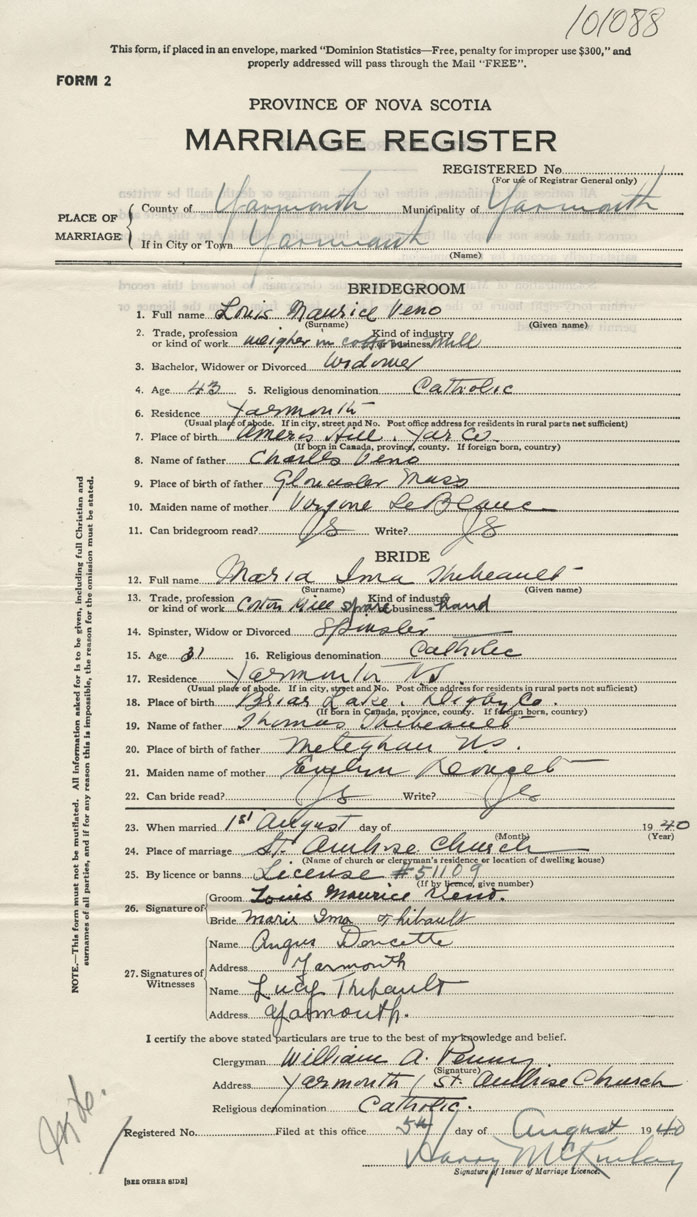 101088
This form, if placed in an envelope, marked "Dominion Statistics—Free, penalty for improper use $300," and
properly addressed will pass through the Mail "FREE".
FORM 2
PROVINCE OF NOVA SCOTIA
MARRIAGE REGISTER
REGISTERED No.
(For use of Registrar General only)
PLACE OF MARRIAGE
County of Yarmouth Municipality of Yarmouth
If in City or Town Yarmouth
(Name)
BRIDEGROOM
1. Full name Louis Maurice Veno
(Surname) (Given name)
2. Trade, profession or kind of work weigher in cotton Kind of industry business Mill
3. Bachelor, Widower or Divorced Widower
4. Age 43 5. Religious denomination Catholic
6. Residence Yarmouth
(Usual place of abode. If in city, street and No. Post office address for residents in rural parts not sufficient)
7. Place of birth Hill, Yar Co.
(If born in Canada, province, county. If foreign born, country)
8. Name of father Charles Veno
9. Place of birth of father Gloucester Mass
10. Maiden name of mother LeBlanc
11. Can bridegroom read? Write?
BRIDE
12. Full name Maria Ima Thibeault
(Surname) (Given name)
13. Trade, profession or kind of work Cotton Mill Kind of industry business hand
14. Spinster, Widow or Divorced Spinster
15. Age 31 16. Religious denomination Catholic
17. Residence Yarmouth NS
(Usual place of abode. If in city, street and No. Post office address for residents in rural parts not sufficient)
18. Place of birth Briar Lake, Digby Co.
(If born in Canada, province, county. If foreign born, country)
19. Name of father Thomas Thibeault
20. Place of birth of father Meteghan N.S.
21. Maiden name of mother Evelyn Doucet
22. Can bride read? Write?
23. When married 1st August day of 1940
(Month) (Year)
24. Place of marriage St. Ambrose Church
(Name of church or clergyman's residence or location of dwelling house)
25. By licence or banns License #51109
(If by licence, give number)
26. Signature of
Groom Louis Maurice Veno.
Bride Marie Ima Thibault
27. Signatures of Witnesses
Name Angus Doucette
Address Yarmouth
Name Lucy Thibault
Address Yarmouth.
I certify the above stated particulars are true to the best of my knowledge and belief.
Clergyman William A. Penny
(Signature)
Address Yarmouth / St. Ambrose Church
Religious denomination Catholic.
Registered No. Filed at this office 5th day of August 1940
Harry McKinlay
Signature of Issuer of Marriage Licence.
[SEE OTHER SIDE]
NOTE.—This form must not be mutilated. All information asked for is to be given, including full Christian and
surnames of all parties, and if for any reason this is impossible, the reason for the omission must be stated.